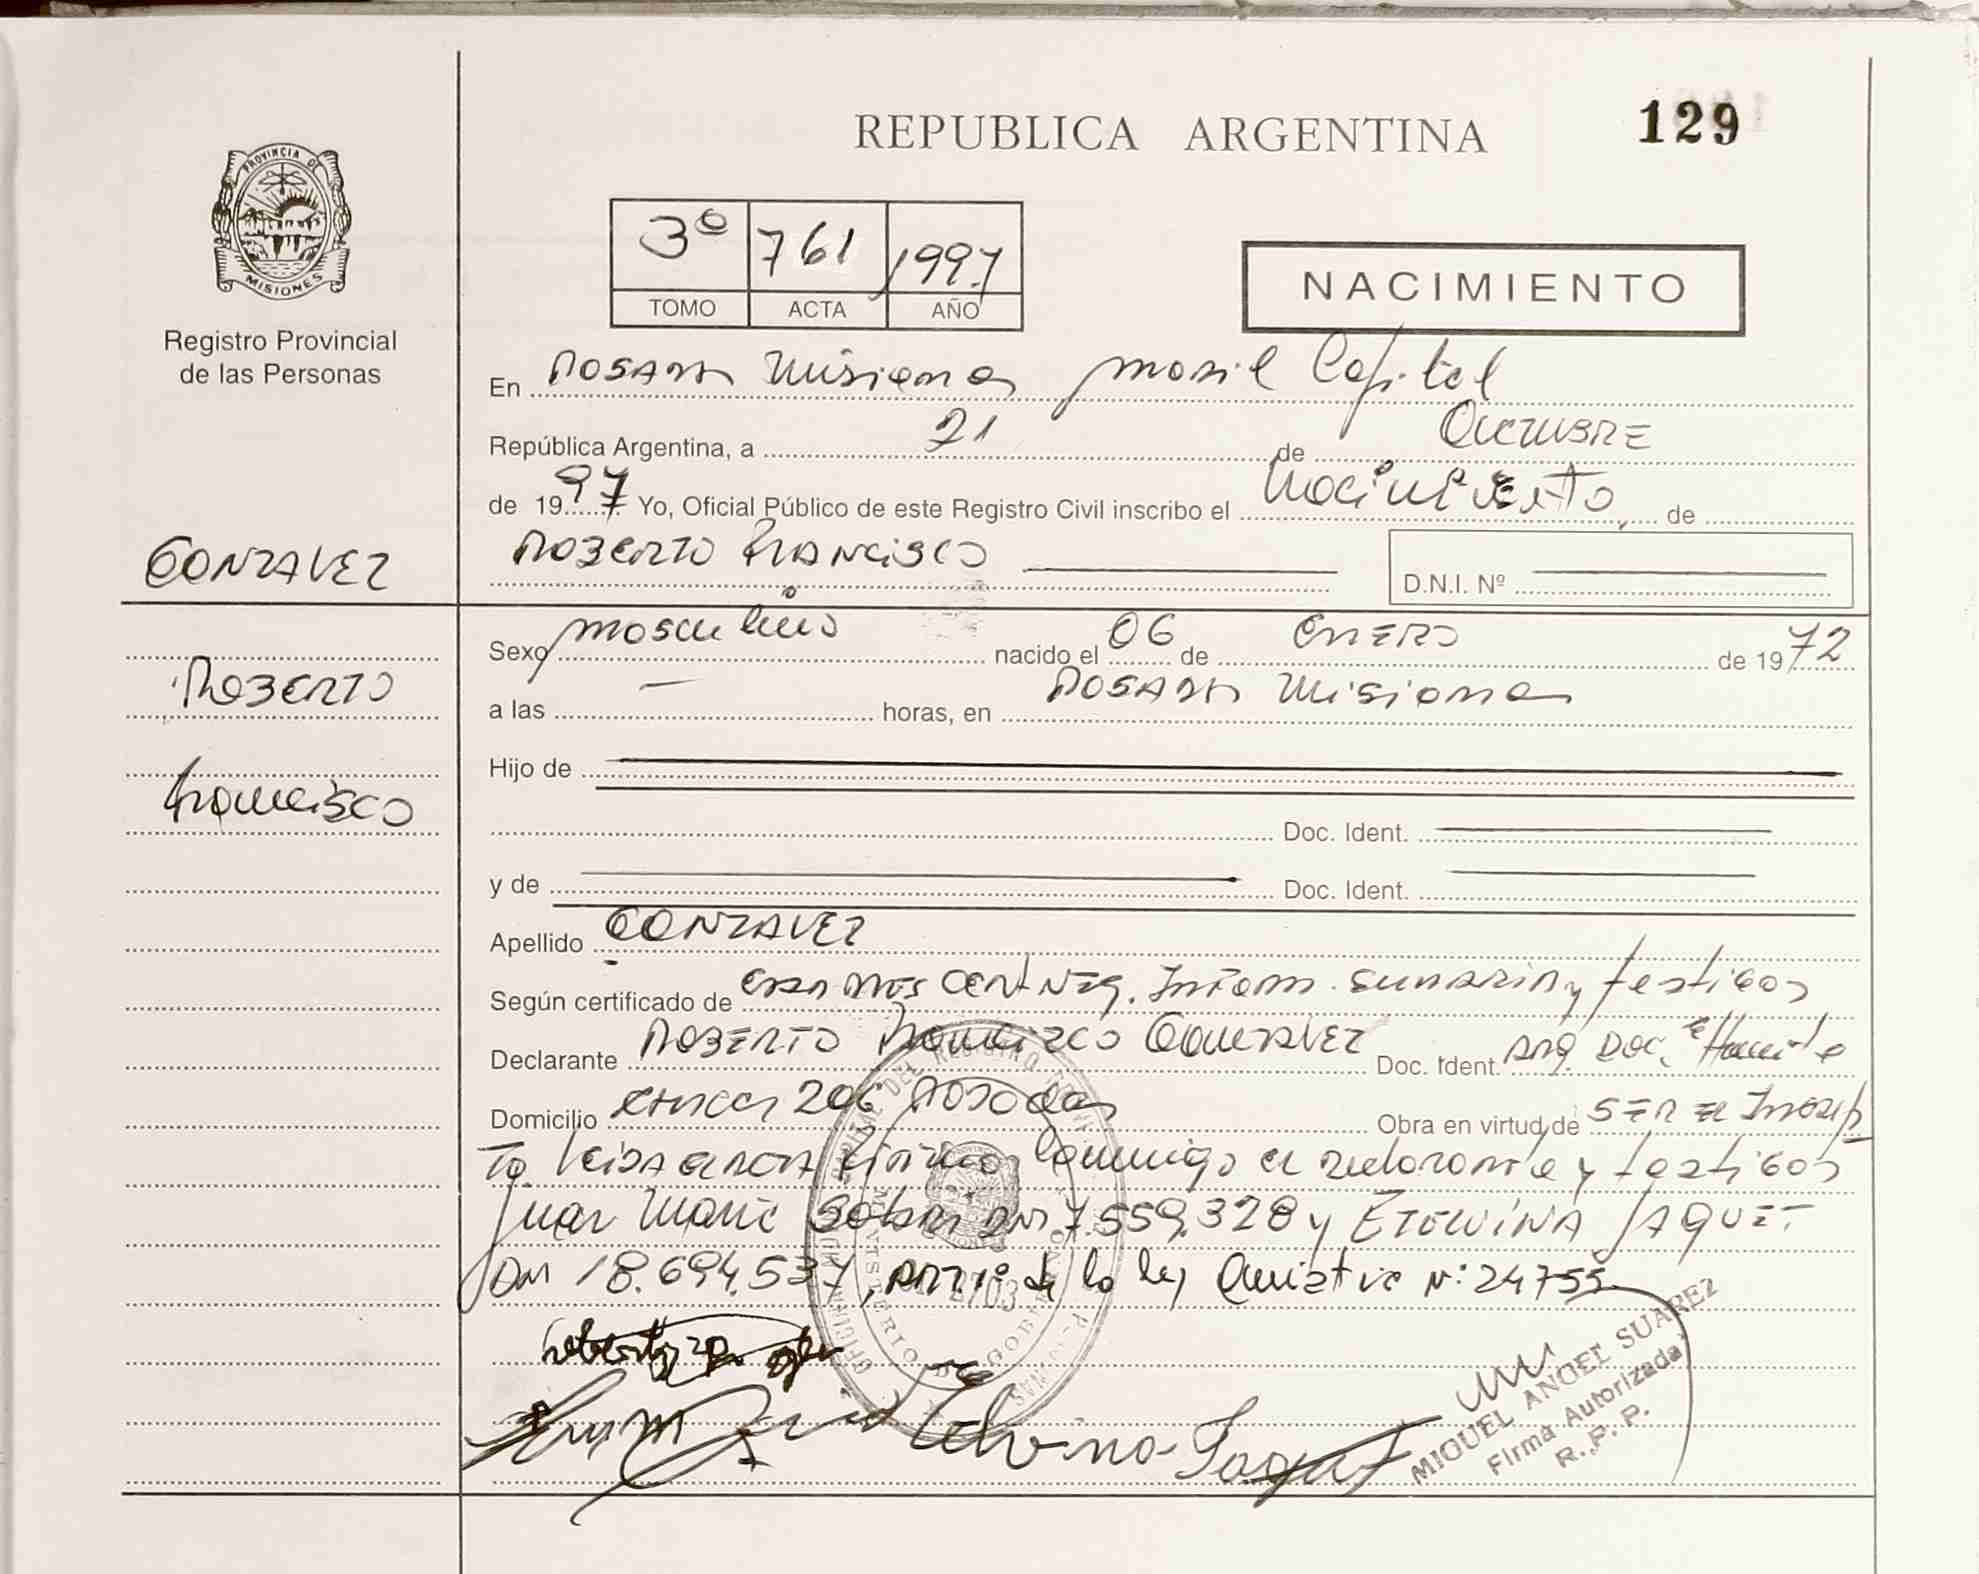 REPUBLICA ARGENTINA
129
PROVINCIA DE
MISIONES
Registro Provincial
de las Personas
3º 761 1997
TOMO ACTA AÑO
NACIMIENTO
En Posadas Misiones movil Capital
República Argentina, a 21 de Octubre
de 1997 Yo, Oficial Público de este Registro Civil inscribo el Nacimiento, de
GONZALEZ
Roberto Francisco
D.N.I. Nº
Sexo masculino nacido el 06 de Enero de 1972
Roberto
a las — horas, en Posadas Misiones
Hijo de
Francisco
Doc. Ident.
y de Doc. Ident.
Apellido GONZALEZ
Según certificado de Neg. Inform. Sumaria y testigos
Declarante Roberto Francisco Gonzalez Doc. Ident. Arg. Doc.
Domicilio 206 Posadas Obra en virtud de ser el
Leida el acta firman conmigo el declarante y testigos
Juan Mario DNI 7.559.328 y Etelvina Jaquet
DNI 18.694.537, Art. 1º de la ley Amnistia Nº 24755
Etelvina Jaquet
MIGUEL ANGEL SUAREZ
Firma Autorizada
R. P. P.